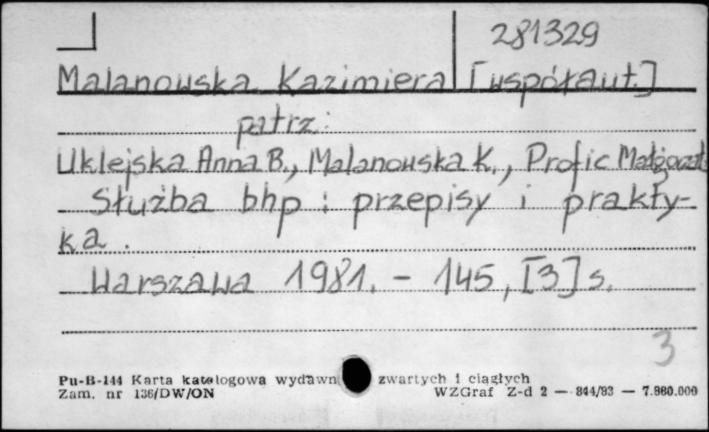 281329
Malanowska Kazimiera [współaut.]
patrz:
Uklejska Anna B., Malanowska K., Profic Małgorzata
Służba bhp : przepisy i prakty-
ka.
Warszawa 1981. - 145, [3] s.
3
Pu-B-144 Karta katalogowa wydawn zwartych i ciągłych
Zam. nr 136/DW/ON WZGraf Z-d 2 — 844/83 — 7.860.000